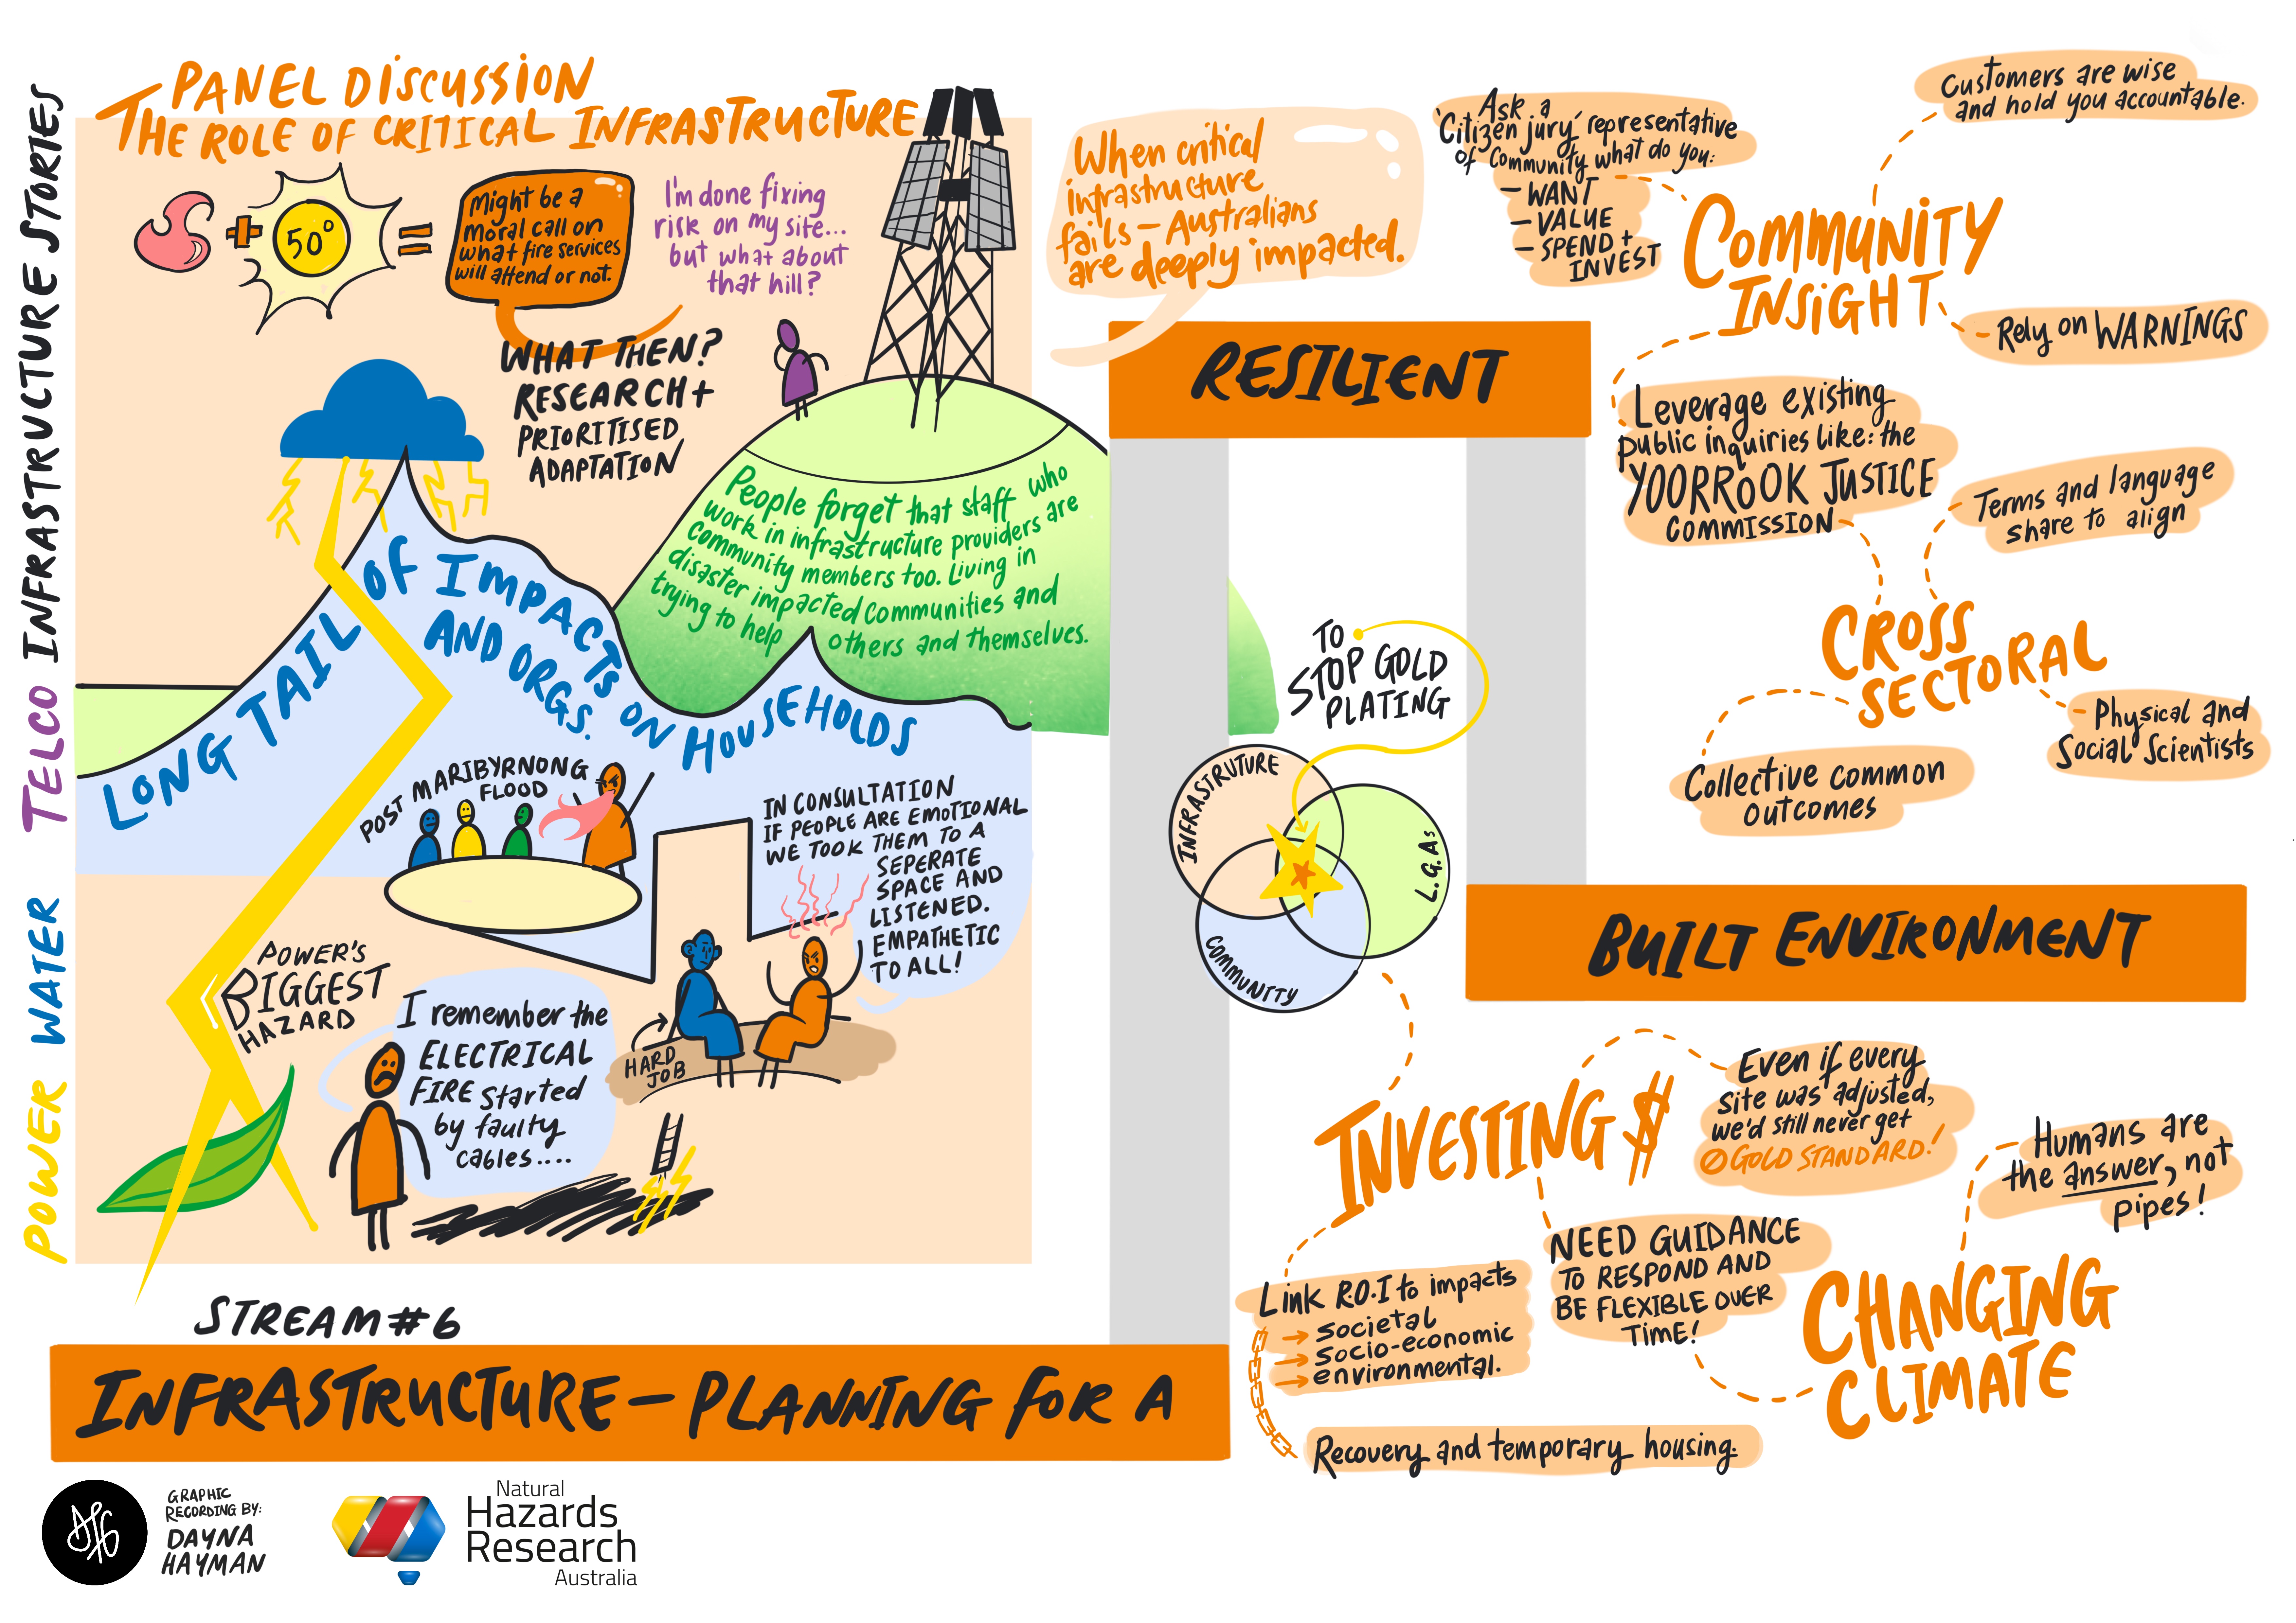 PANEL DISCUSSION
THE ROLE OF CRITICAL INFRASTRUCTURE
POWER WATER TELCO INFRASTRUCTURE STORIES
+ 50° =
Might be a
moral call on
what fire services
will attend or not.
I'm done fixing
risk on my site...
but what about
that hill?
WHAT THEN?
RESEARCH +
PRIORITISED
ADAPTATION
People forget that staff who
work in infrastructure providers are
community members too. Living in
disaster impacted communities and
trying to help others and themselves.
LONG TAIL OF IMPACTS ON HOUSEHOLDS
AND ORGS.
POST MARIBYRNONG
FLOOD
IN CONSULTATION
IF PEOPLE ARE EMOTIONAL
WE TOOK THEM TO A
SEPERATE
SPACE AND
LISTENED.
EMPATHETIC
TO ALL!
HARD
JOB
POWER'S
BIGGEST
HAZARD
I remember the
ELECTRICAL
FIRE started
by faulty
cables....
STREAM #6
INFRASTRUCTURE - PLANNING FOR A
RESILIENT
BUILT ENVIRONMENT
When critical
infrastructure
fails - Australians
are deeply impacted.
TO
STOP GOLD
PLATING
INFRASTRUTURE
L.G.As
COMMUNITY
COMMUNITY
INSIGHT
Ask a
'Citizen jury' representative
of community what do you:
- WANT
- VALUE
- SPEND +
INVEST
Customers are wise
and hold you accountable.
Rely on WARNINGS
Leverage existing
public inquiries like: the
YOORROOK JUSTICE
COMMISSION
CROSS
SECTORAL
Terms and language
share to align
Physical and
Social Scientists
Collective common
outcomes
INVESTING $
Even if every
site was adjusted,
we'd still never get
Ø GOLD STANDARD!
NEED GUIDANCE
TO RESPOND AND
BE FLEXIBLE OVER
TIME!
Link R.O.I to impacts
→ societal
→ socio-economic
→ environmental.
Recovery and temporary housing.
CHANGING
CLIMATE
Humans are
the answer, not
pipes!
GRAPHIC
RECORDING BY:
DAYNA
HAYMAN
Natural
Hazards
Research
Australia